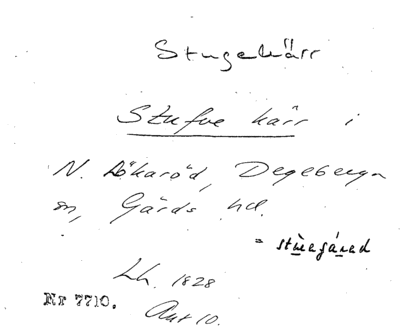 Stugekärr
Stufve kärr i
N. Lökaröd, Degeberga
sn, Gärds hd.
= stuegáred
Lh. 1828
Nr 7710. Akt 10.